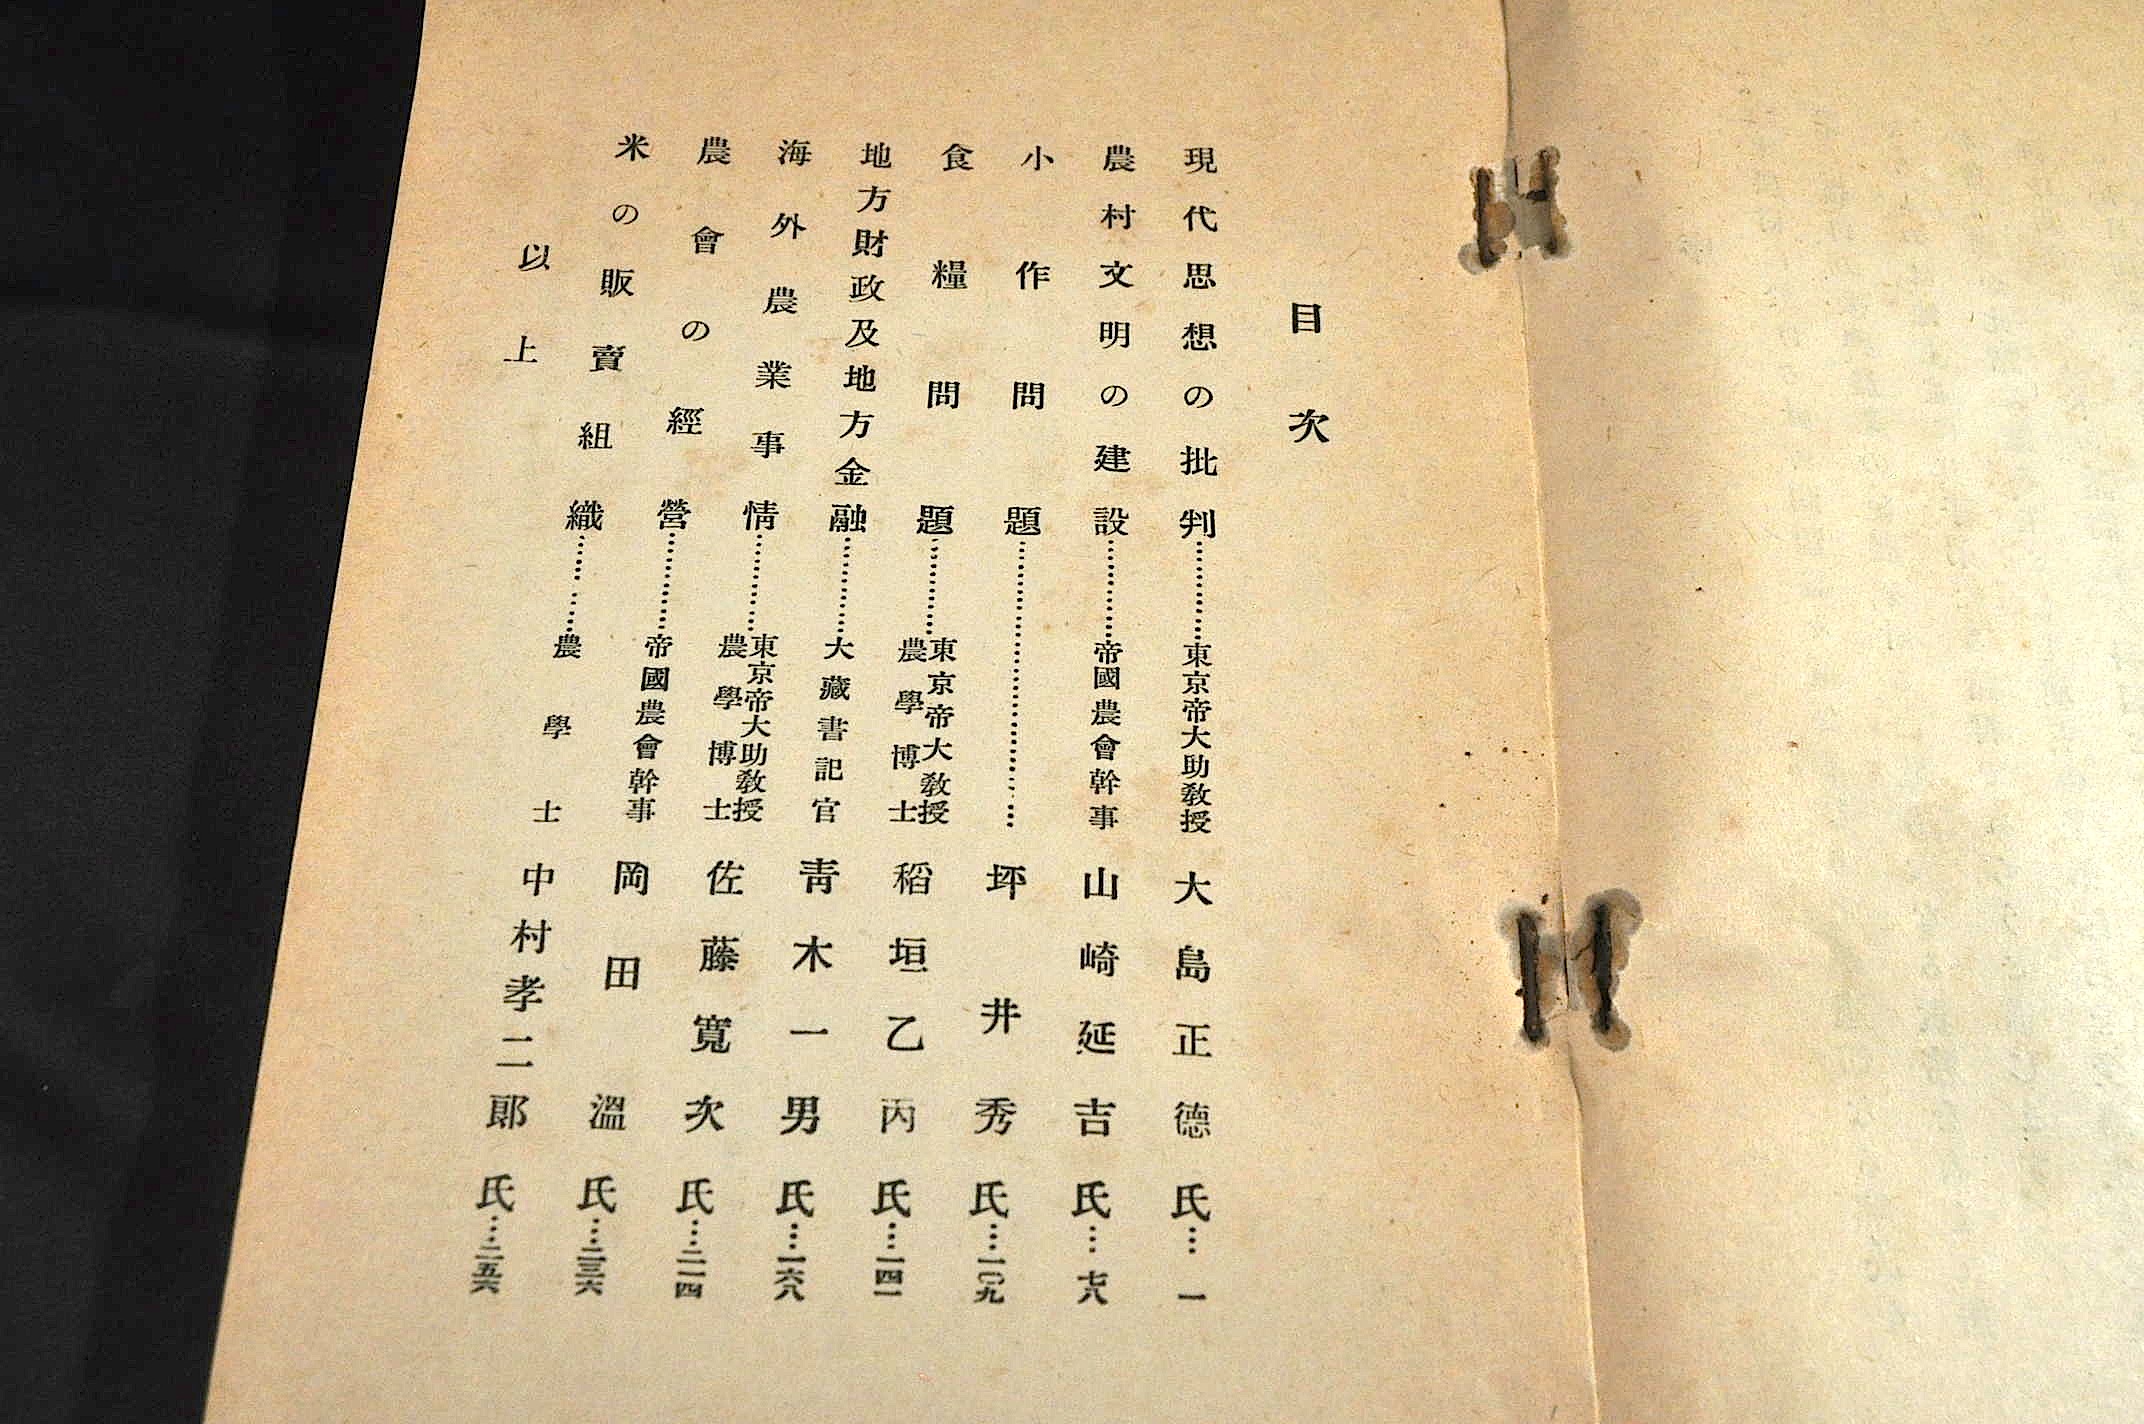 目次
現代思想の批判…………東京帝大助教授 大島正德氏…一
農村文明の建設…………帝國農會幹事 山崎延吉氏…七八
小作問題……………………………坪井秀氏…一〇九
食糧問題…………東京帝大教授 農學博士 稻垣乙丙氏…一四一
地方財政及地方金融…………大藏書記官 靑木一男氏…一六八
海外農業事情…………東京帝大助教授 農學博士 佐藤寬次氏…二一四
農會の經營…………帝國農會幹事 岡田溫氏…二三六
米の販賣組織…………農學士 中村孝二郎氏…二五六
以上